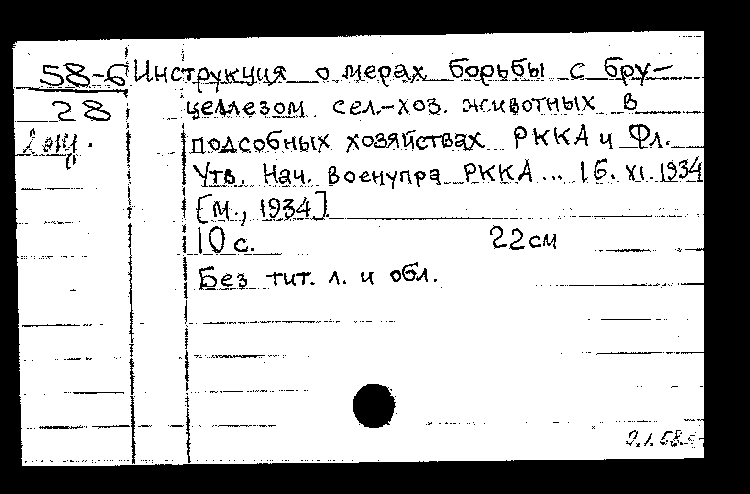 58-6 Инструкция о мерах борьбы с бру-
28 целлезом сел.-хоз. животных в
2 экз. подсобных хозяйствах РККА и Фл.
Утв. Нач. Военупра РККА... 16.XI.1934
[М., 1934].
10 с. 22 см
Без тит. л. и обл.